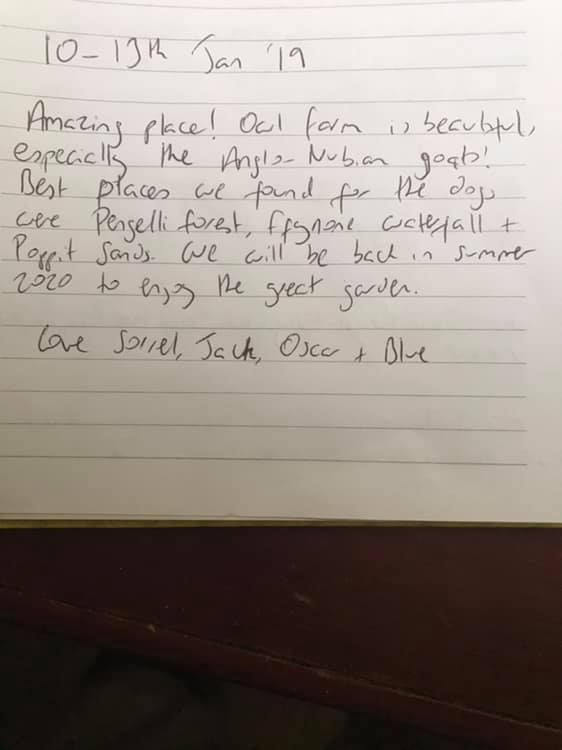 10-13th Jan '19
Amazing place! Owl farm is beautiful,
especially the Anglo-Nubian goats!
Best places we found for the dogs
were Pengelli forest, Ffynone waterfall +
Poppit Sands. We will be back in summer
2020 to enjoy the great garden.
Love Sorrel, Jack, Oscar + Blue